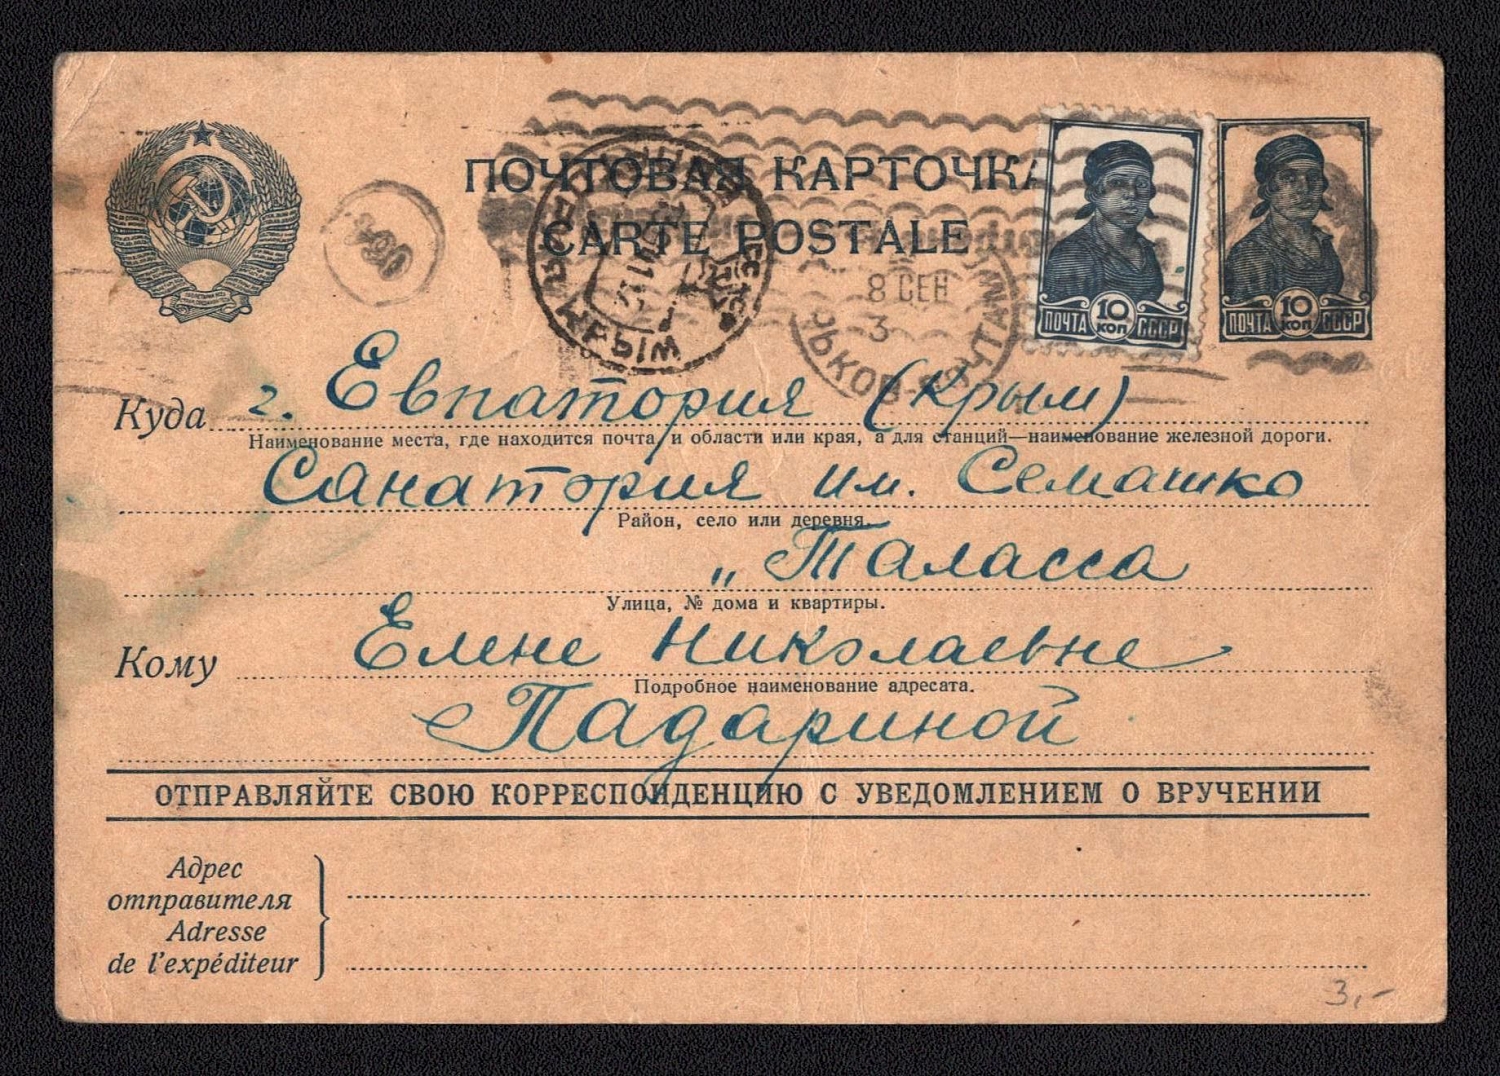 ПОЧТОВАЯ КАРТОЧКА
CARTE POSTALE
8 СЕН
3
10 КОП
ПОЧТА СССР
10 КОП
ПОЧТА СССР
Куда г. Евпатория (Крым)
Наименование места, где находится почта, и области или края, а для станций—наименование железной дороги.
Санатория им. Семашко
Район, село или деревня.
„Таласса
Улица, № дома и квартиры.
Кому Елене Николаевне
Подробное наименование адресата.
Падариной
ОТПРАВЛЯЙТЕ СВОЮ КОРРЕСПОНДЕНЦИЮ С УВЕДОМЛЕНИЕМ О ВРУЧЕНИИ
Адрес
отправителя
Adresse
de l'expéditeur
3,-